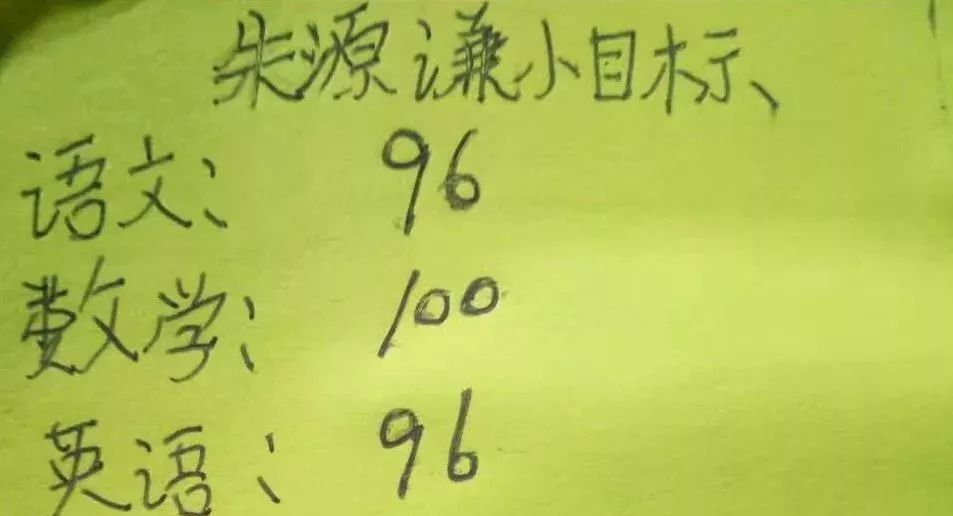 朱源谦小目标、
语文： 96
数学： 100
英语： 96